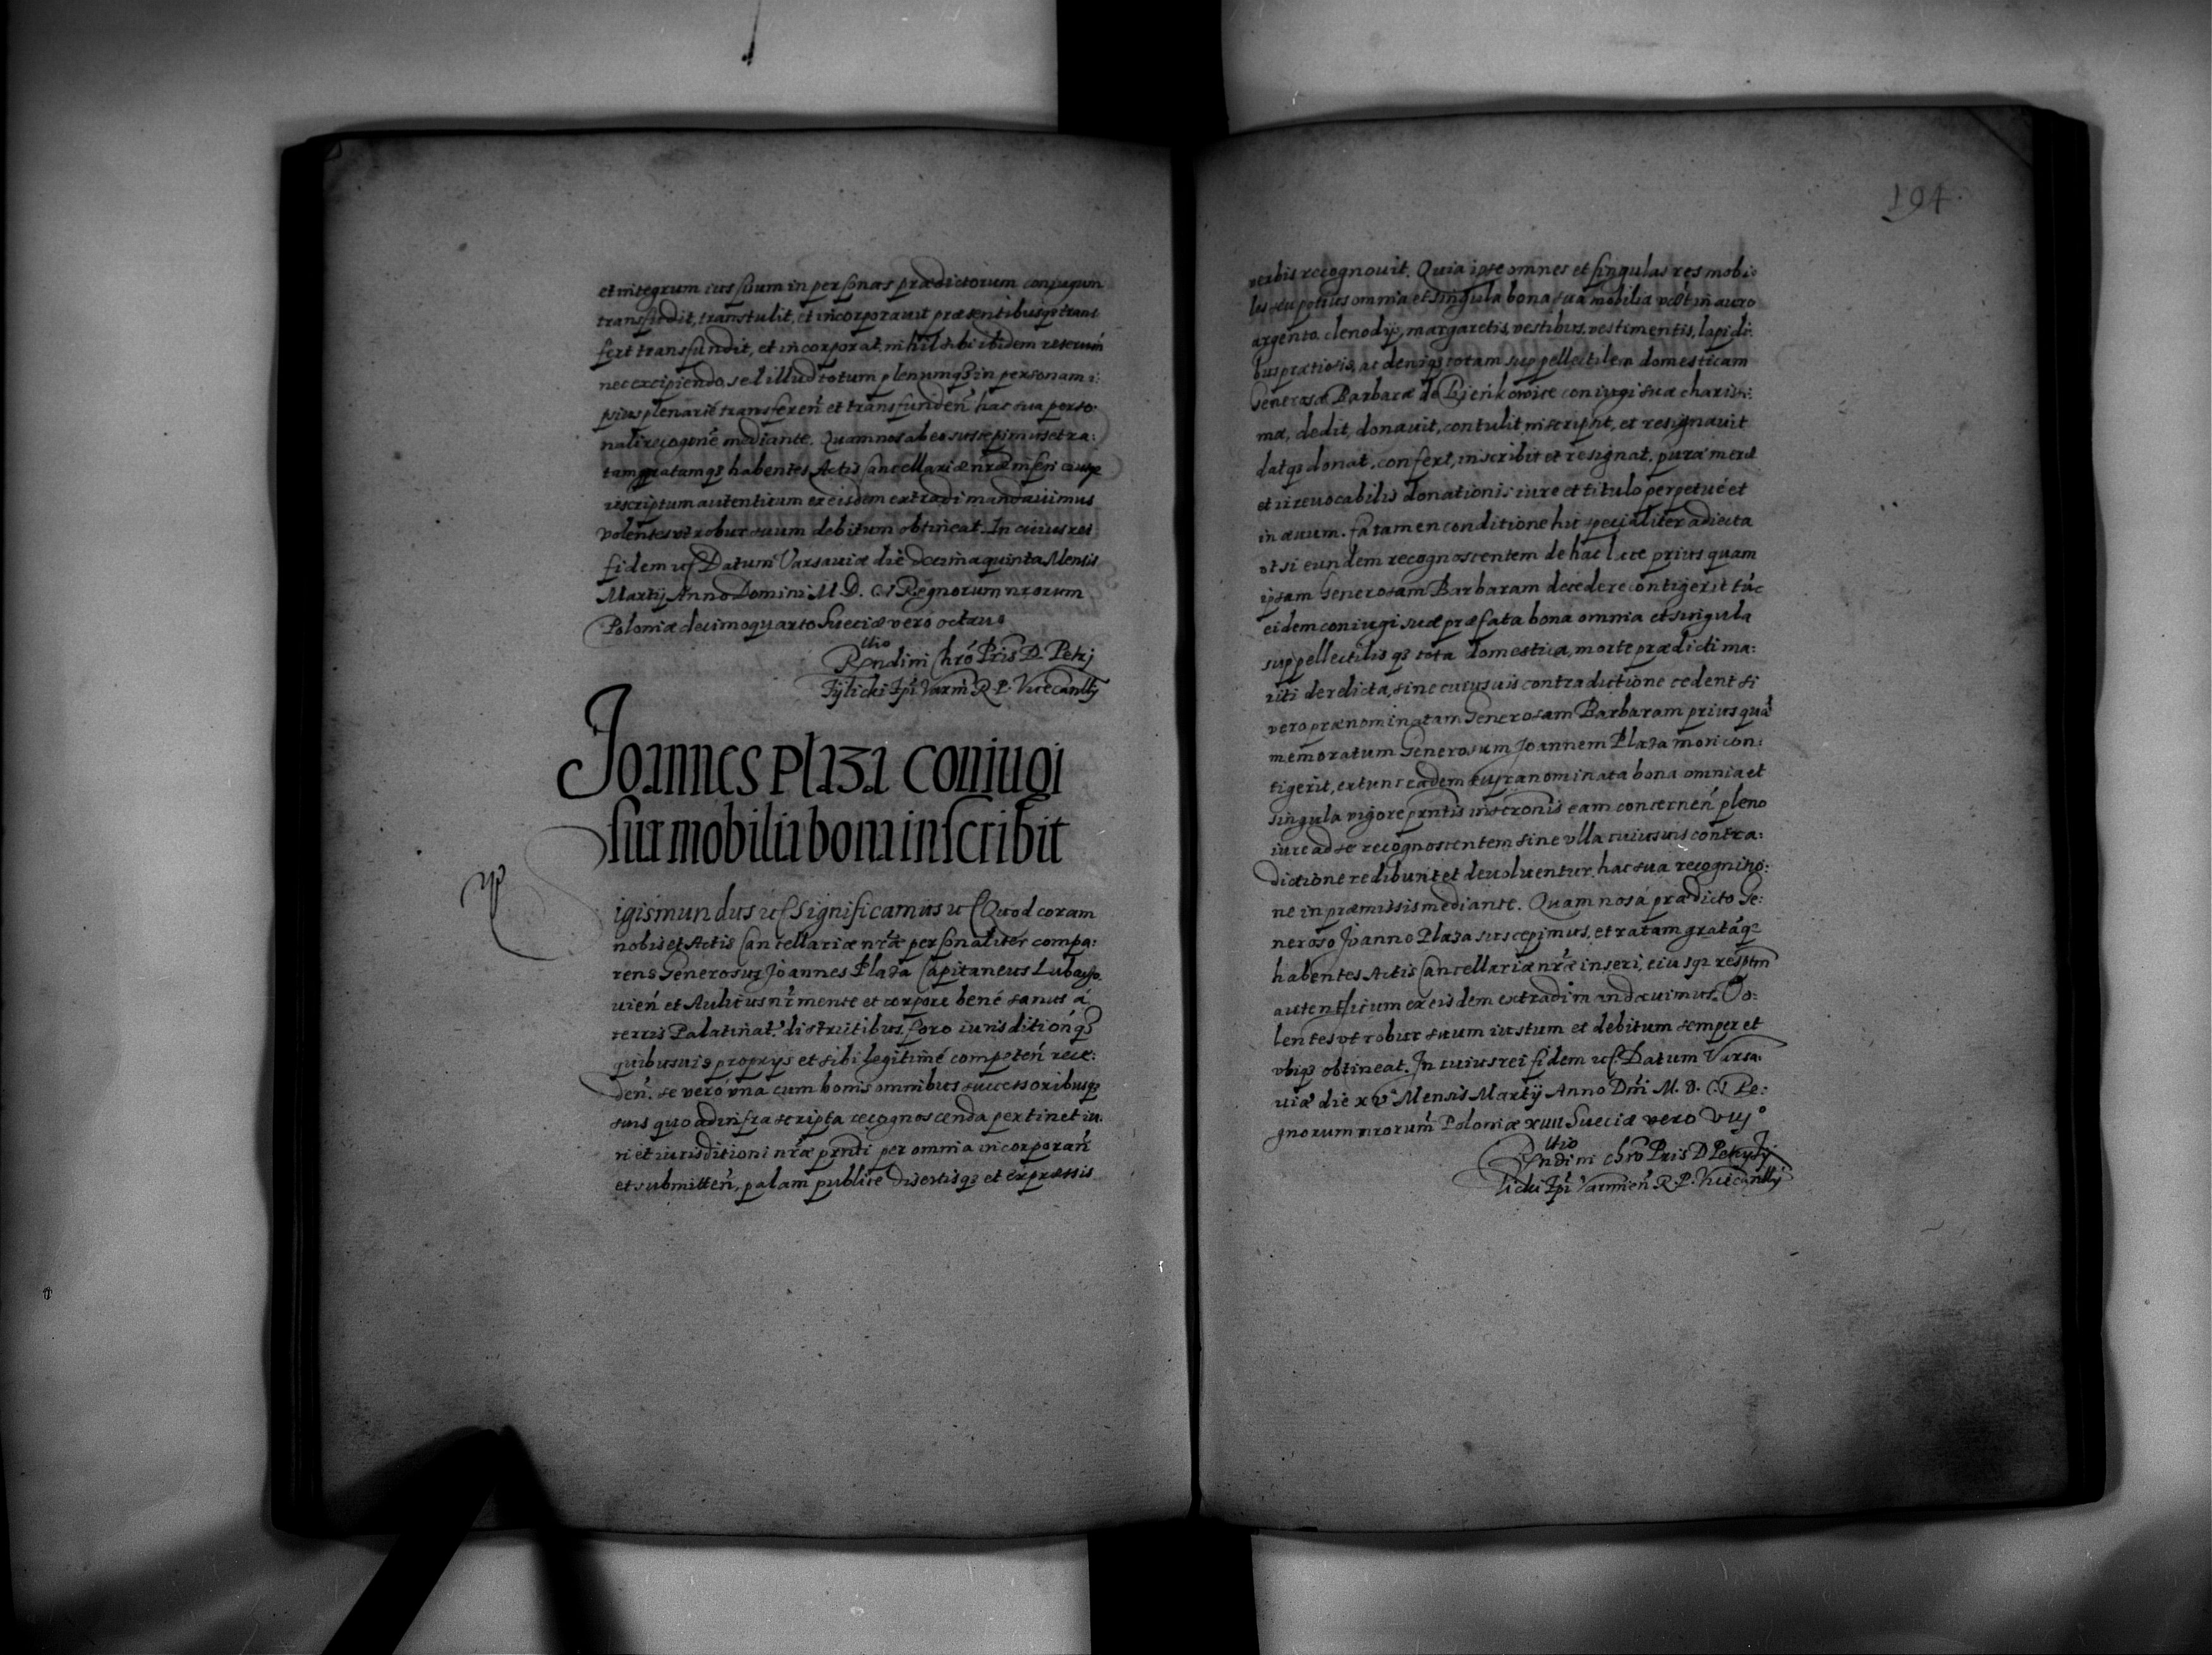 et integrum ius suum in personas prædictorum coniugum
transfudit, transtulit, et incorporauit præsentibusq3 trans
fert transfundit, et incorporat, nihil sibi ibidem reseruán
nec excipiendo, sed illud totum plenumq3 in personam i:
psius plenarié transferen̄ et transfunden̄ hac sua perso:
nali recogōne mediante. Quam nos ab eo suscepimus et ra:
tam gratamq3 habentes Actis Cancellariæ nr̄æ inseri eiusq3
rescriptum autenticum ex eisdem extradi mandauimus
volentes vt robur suum debitum obtineat. In cuius rei
fidem etc Datum Varsauiæ die decima quinta Mensis
Martij Anno Domini M. D. CI Regnorum nrorum
Poloniæ decimoquarto Sueciæ vero octauo
Rndini Chrō Pris D. Petrj
Tylicki Epī Varm̄ R. P. Vicecanllīj
Joannes Plaza coniugi
sux mobilia bona inscribit
igismundus etc Significamus etc Quod coram
nobis et Actis Cancellariæ nr̄æ personaliter compa:
rens Generosus Joannes Plaza Capitaneus Lubaczo
uien̄ et Aulicus nr̄ mente et corpore bené sanus á
terris Palatinat: districtibus, foro iurisdition̄q3
quibusuis proprijs et sibi legitimé competen̄ rece:
den̄. se vero vna cum bonis omnibus successoribusq3
suis quo ad infra scripta recognoscenda pertinet iu:
ri et iurisditioni nr̄æ prnti per omnia incorporan̄
et submitten̄, palam publice disertisq3 et expressis
194.
verbis recognouit. Quia ipse omnes et singulas res mobi:
les seu potius omnia et singula bona sua mobilia in auro
argento, clenodijs, margaretis, vestibus, vestimentis, lapidi:
bus prætiosis, ac deniq3 totam suppellectilem domesticam
Generosæ Barbaræ de coniugi suæ charissi:
mæ, dedit, donauit, contulit inscripsit, et resignauit
datq3 donat, confert, inscribit et resignat, puræ meræ
et irreuocabilis donationis iure et titulo perpetué et
in æuum. Ea tamen conditione hic specialiter adiecta
vt si eundem recognoscentem de hac luce prius quam
ipsam Generosam Barbaram decedere contigerit túc
eidem coniugi suæ præfata bona omnia et singula
suppellectilisq3 tota domestica, morte prædicti ma:
riti derelicta, sine cuiusuis contradictione cedent si
vero prænominatam Generosam Barbaram prius quā
memoratum Generosum Joannem Plaza mori con:
tigerit, extunc eadem supranominata bona omnia et
singula vigore prntis inscronis eam concernen̄ pleno
iure ad se recognoscentem sine vlla cuiusuis contra:
dictione redibunt et deuoluentur, hac sua recognitio:
ne in præmissis mediante. Quam nos á prædicto Ge:
neroso Joanne Plaza suscepimus, et ratam gratáq3
habentes Actis Cancellariæ nr̄æ inseri, eiusq3 resptm̄
autenticum ex eisdem extradi mandauimus. Vo:
lentes vt robur suum iustum et debitum semper et
vbiq3 obtineat. In cuius rei fidem etc. Datum Varsa:
uiæ die xv Mensis Martij Anno Dn̄i M. D. CI Re:
gnorum nrorum̄ Poloniæ xiiii Sueciæ vero viijº
Rndini Chrō Pris D Petrj Ty
licki Epī Varmien̄ R. P. Vicecanllīj